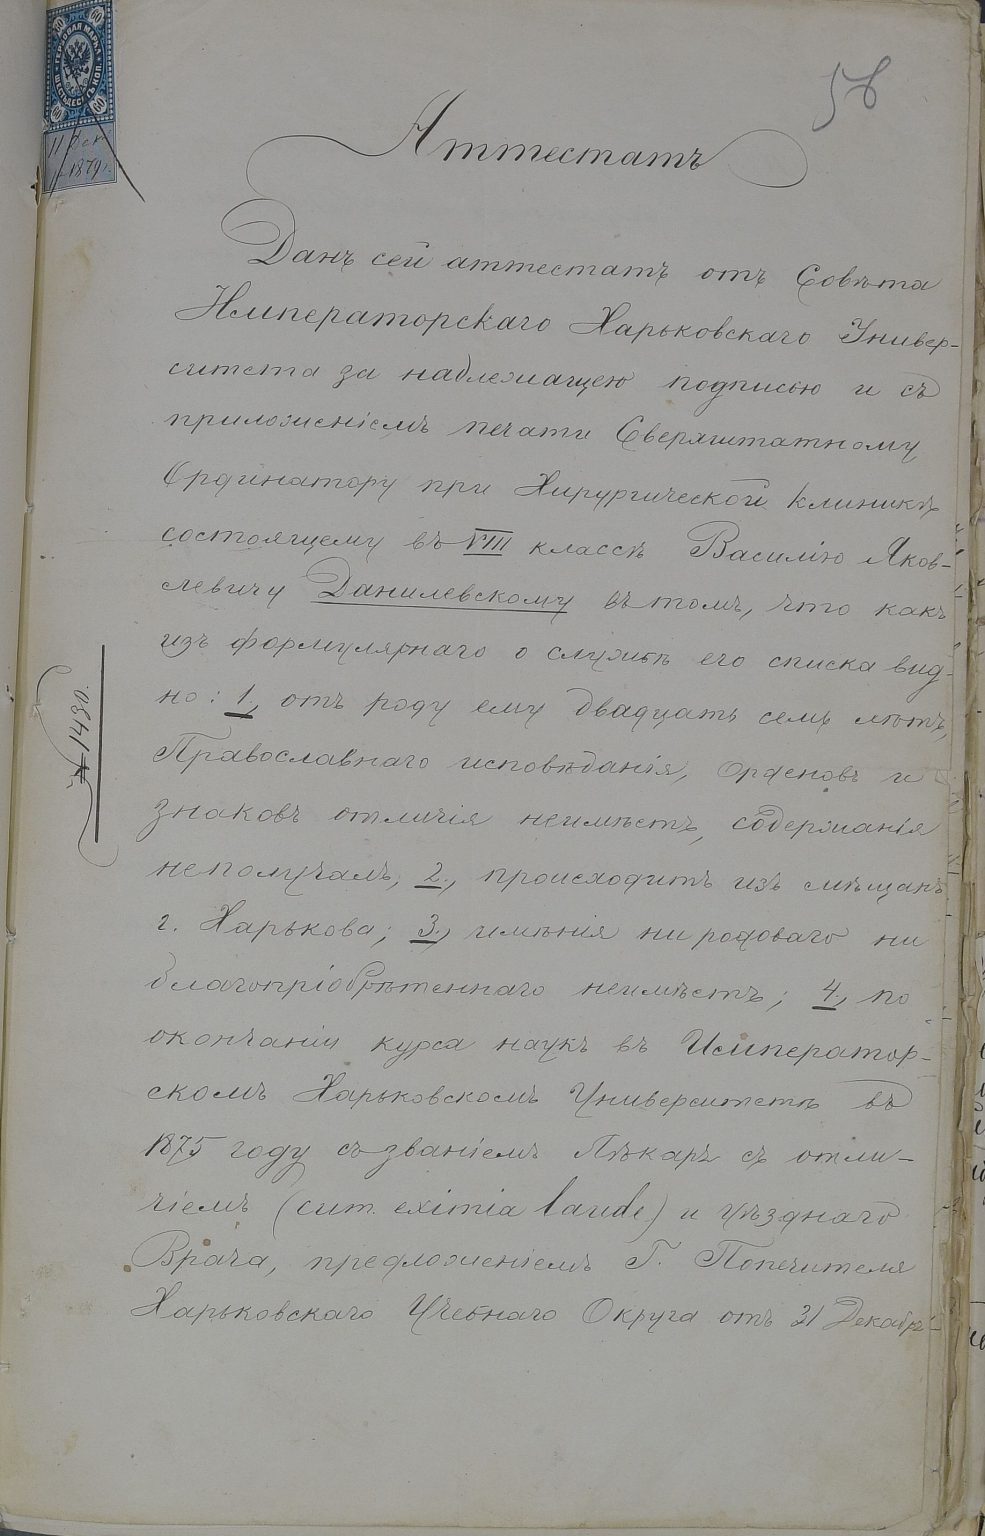 60 60
ГЕРБОВАЯ МАРКА
ШЕСТЬДЕСЯТЪ КОП.
60 60
11 Дек.
1879 г.
58
Аттестатъ
Данъ сей аттестатъ отъ Совѣта
Императорскаго Харьковскаго Универ-
ситета за надлежащею подписью и съ
приложеніемъ печати Сверхштатному
Ординатору при Хирургической клиникѣ
состоящему въ VIII классѣ Василію Яков-
левичу Данилевскому въ томъ, что какъ
изъ формулярнаго о службѣ его списка вид-
но: 1, отъ роду ему двадцать семь лѣтъ,
Православнаго исповѣданія, Орденовъ и
знаковъ отличія неимѣетъ, содержанія
неполучалъ; 2., происходитъ изъ мѣщанъ
г. Харькова; 3., имѣнія ни родоваго ни
благопріобрѣтеннаго неимѣетъ; 4., по
окончаніи курса наукъ въ Император-
скомъ Харьковскомъ Университетѣ въ
1875 году съ званіемъ Лѣкаря съ отли-
чіемъ (cum eximia laude) и Уѣзднаго
Врача, предложеніемъ Г. Попечителя
Харьковскаго Учебнаго Округа отъ 31 Декабр-
№ 1430.